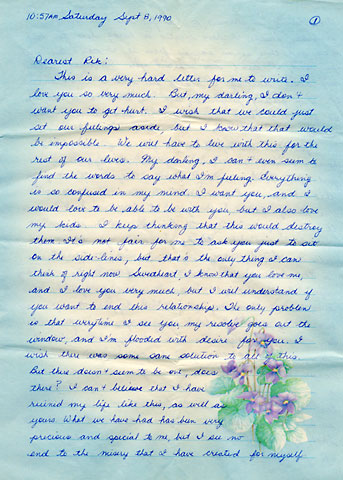 10:57AM Saturday Sept 8, 1990
1
Dearest Rik:
This is a very hard letter for me to write. I
love you so very much. But, my darling, I don't
want you to get hurt. I wish that we could just
set our feelings aside but I know that that would
be impossible. We will have to live with this for the
rest of our lives. My darling, I can't even seem to
find the words to say what I'm feeling. Everything
is so confused in my mind. I want you, and I
would love to be able to be with you, but I also love
my kids. I keep thinking that this would destroy
them. It's not fair for me to ask you just to sit
on the side-lines, but that's the only thing I can
think of right now. Sweatheart, I know that you love me,
and I love you very much, but I will understand if
you want to end this relationship. The only problem
is that everytime I see you, my resolve goes out the
window, and I'm flooded with desire for you. I
wish there was some sane solution to all of this.
But there doesn't seem to be one, does
there? I can't believe that I have
ruined my life like this, as well as
yours. What we have had has been very
precious and special to me, but I see no
end to the misery that I have created for myself